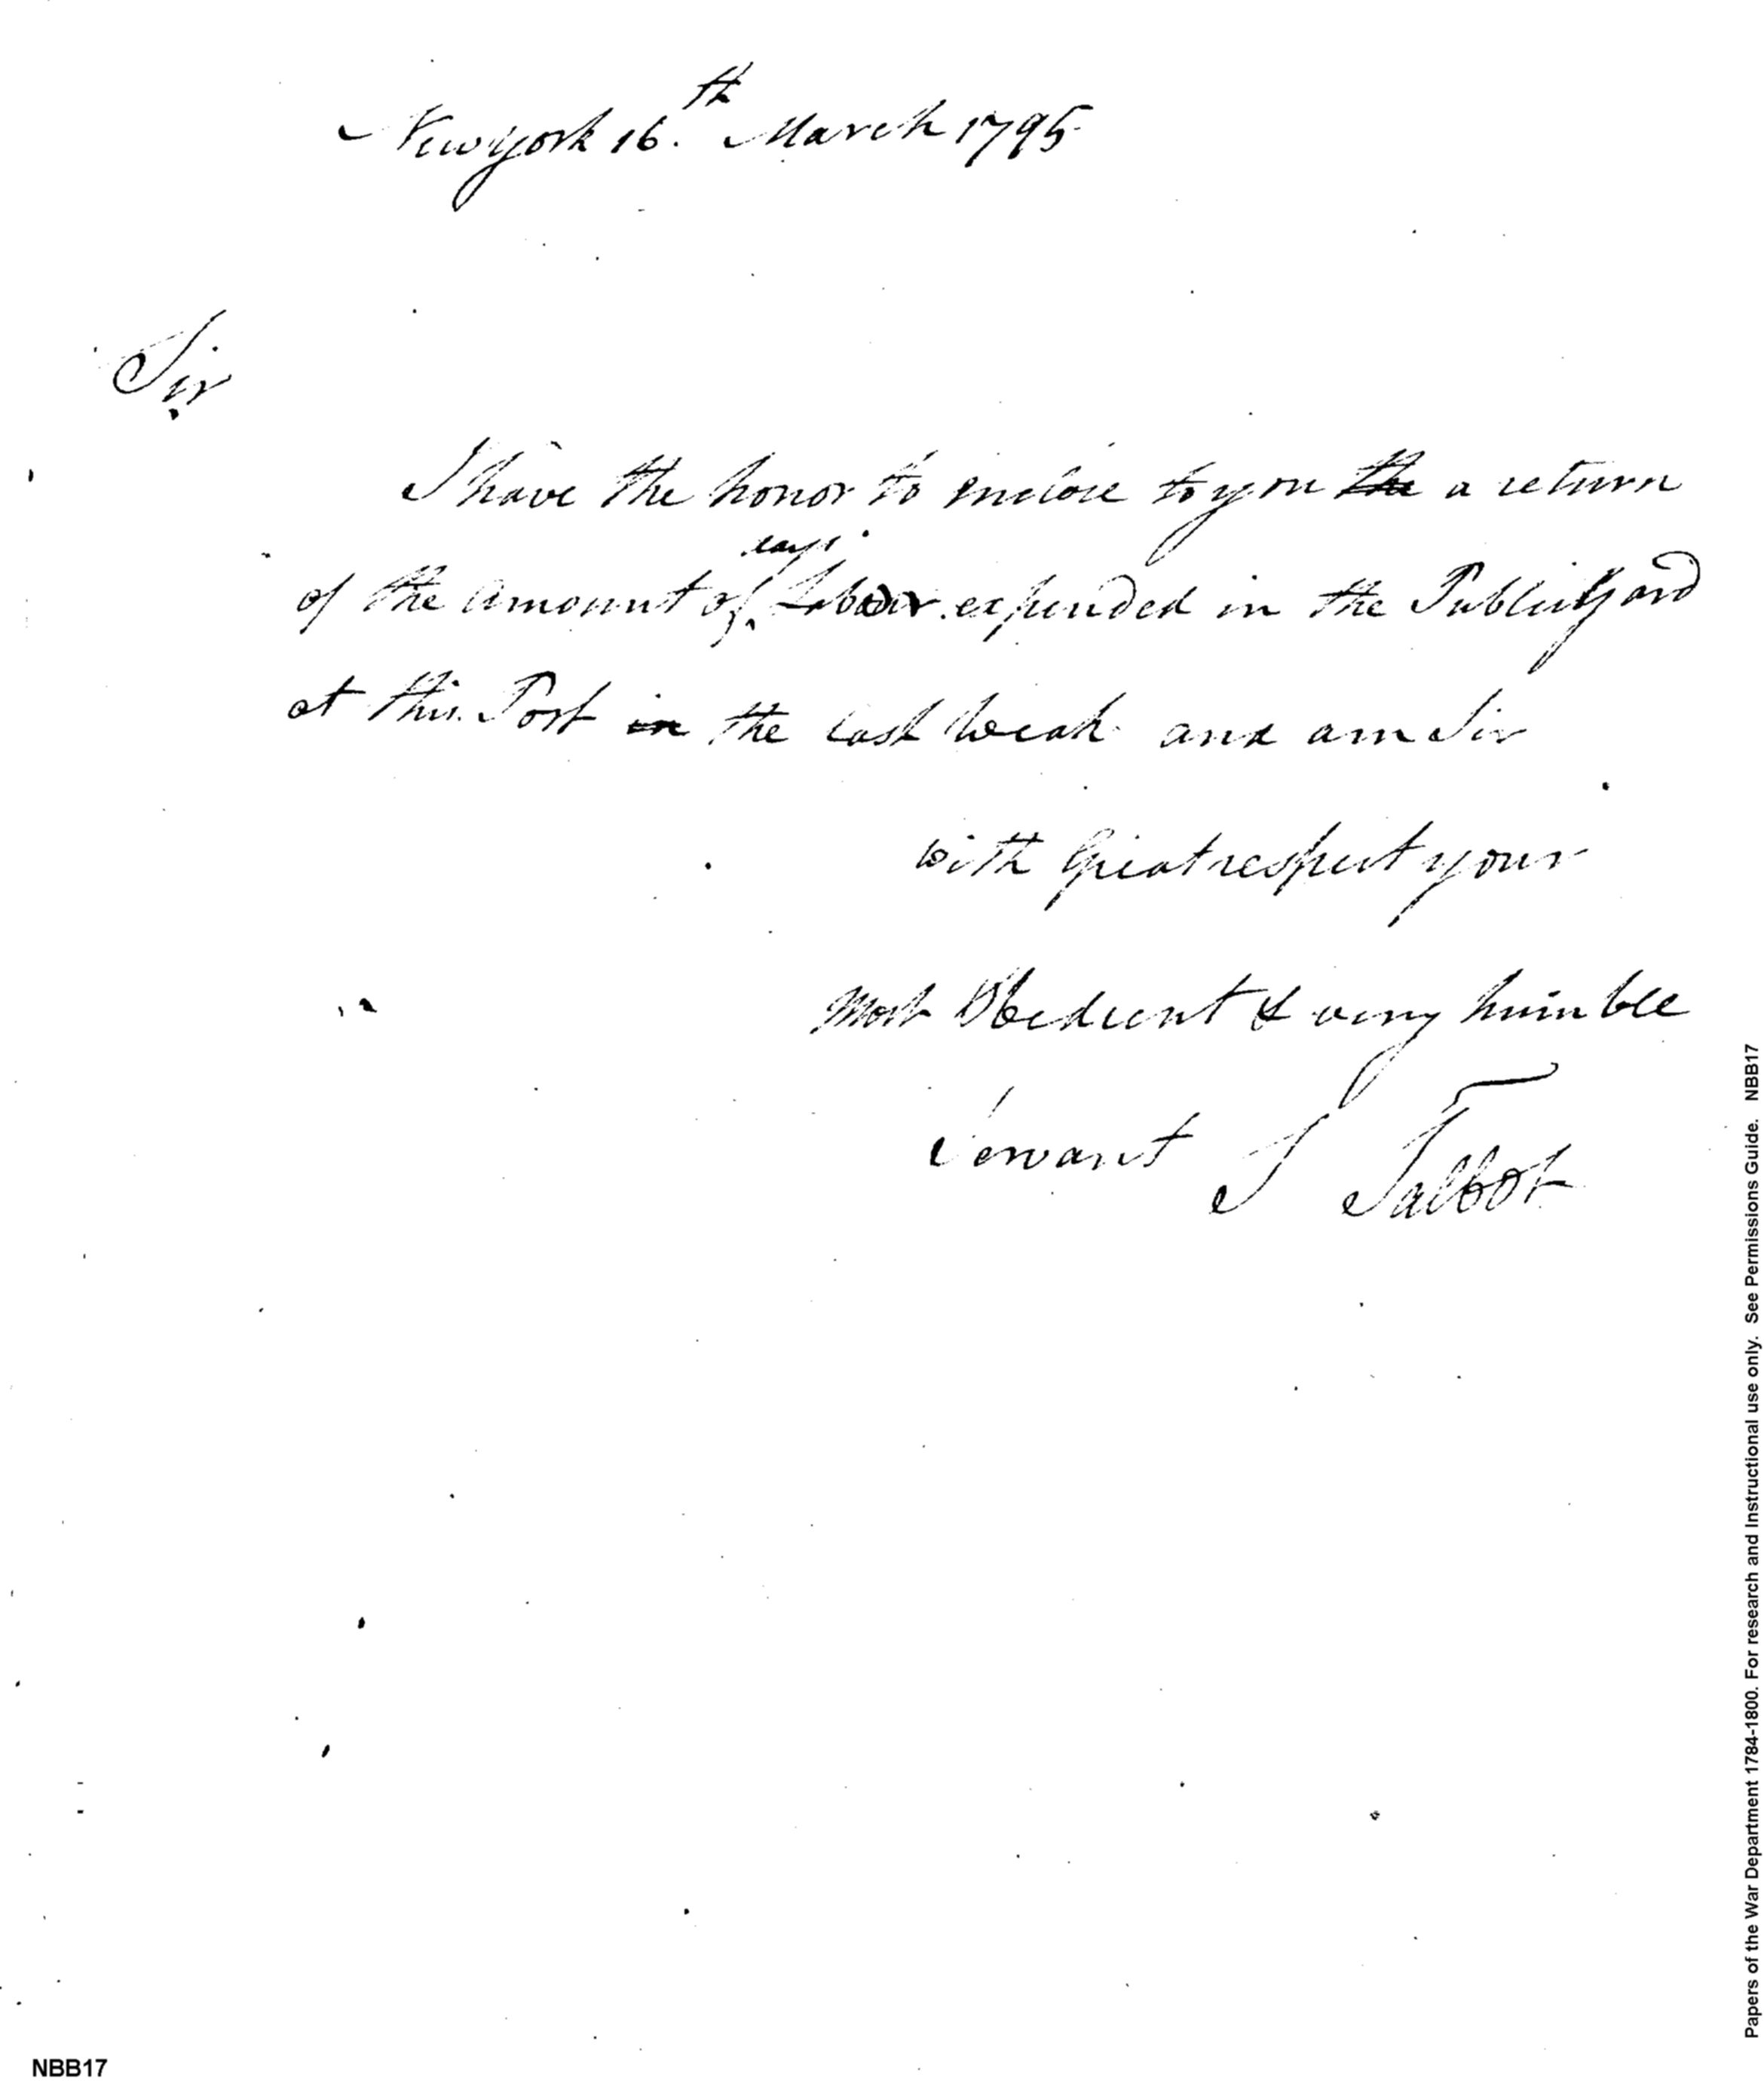 Newyork 16.th March 1795
Sir
I have the honor to enclose to you the a return
days
of the Amount of Labour expended in the Public Yard
at this Port in the last Weak and am Sir
with Great respect your
Most Obedient & very humble
Servant S Talbot
Papers of the War Department 1784-1800. For research and Instructional use only. See Permissions Guide. NBB17
NBB17